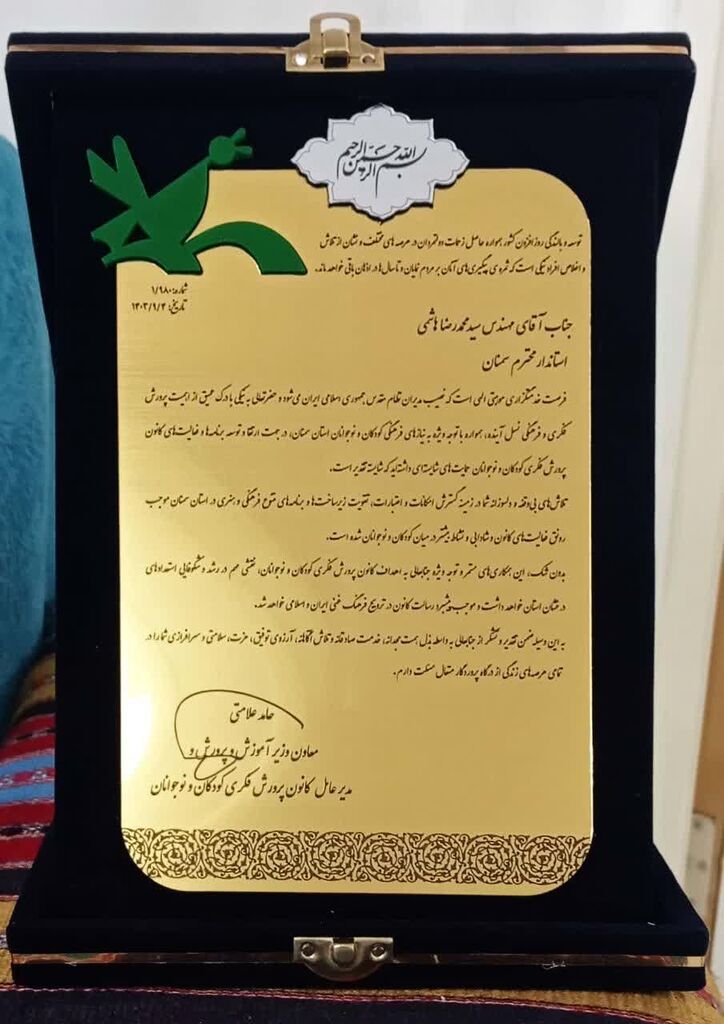 بسم الله الرحمن الرحیم
توسعه و بالندگی روزافزون کشور همواره حاصل زحمات دولتمردان در عرصه های مختلف و نشان از تلاش
و اخلاص افراد نیکی است که ثمره‌ی پیگیری‌های آنان بر مردم نمایان و تا سال‌ها در اذهان باقی خواهد ماند.
شماره: ۱/۹۸۰
تاریخ: ۱۴۰۳/۹/۴
جناب آقای مهندس سید محمدرضا هاشمی
استاندار محترم سمنان
فرصت خدمتگزاری موهبتی الهی است که نصیب مدیران نظام مقدس جمهوری اسلامی ایران می‌شود و حضرتعالی به نیکی با درک عمیق از اهمیت پرورش
فکری و فرهنگی نسل آینده، همواره با توجه ویژه به نیازهای فرهنگی کودکان و نوجوانان استان سمنان، در جهت ارتقا و توسعه برنامه‌ها و فعالیت‌های کانون
پرورش فکری کودکان و نوجوانان حمایت های شایسته‌ای داشته‌اید که شایسته تقدیر است.
تلاش‌های بی‌وقفه و دلسوزانه شما در زمینه گسترش امکانات و اعتبارات، تقویت زیرساخت‌ها و برنامه‌های متنوع فرهنگی و هنری در استان سمنان موجب
رونق فعالیت‌های کانون و شادابی و نشاط بیشتر در میان کودکان و نوجوانان شده است.
بدون شک، این همکاری‌های مستمر و توجه ویژه جنابعالی به اهداف کانون پرورش فکری کودکان و نوجوانان، نقشی مهم در رشد و شکوفایی استعدادهای
درخشان استان خواهد داشت و موجب پیشبرد رسالت کانون در ترویج فرهنگ غنی ایران و اسلامی خواهد شد.
به این وسیله ضمن تقدیر و تشکر از جنابعالی به واسطه بذل همت مجدانه، خدمت صادقانه و تلاش آگاهانه، آرزوی توفیق، عزت، سلامتی و سرافرازی شما را در
تمامی عرصه‌های زندگی از درگاه پروردگار متعال مسئلت دارم.
حامد علامتی
معاون وزیر آموزش و پرورش و
مدیر عامل کانون پرورش فکری کودکان و نوجوانان